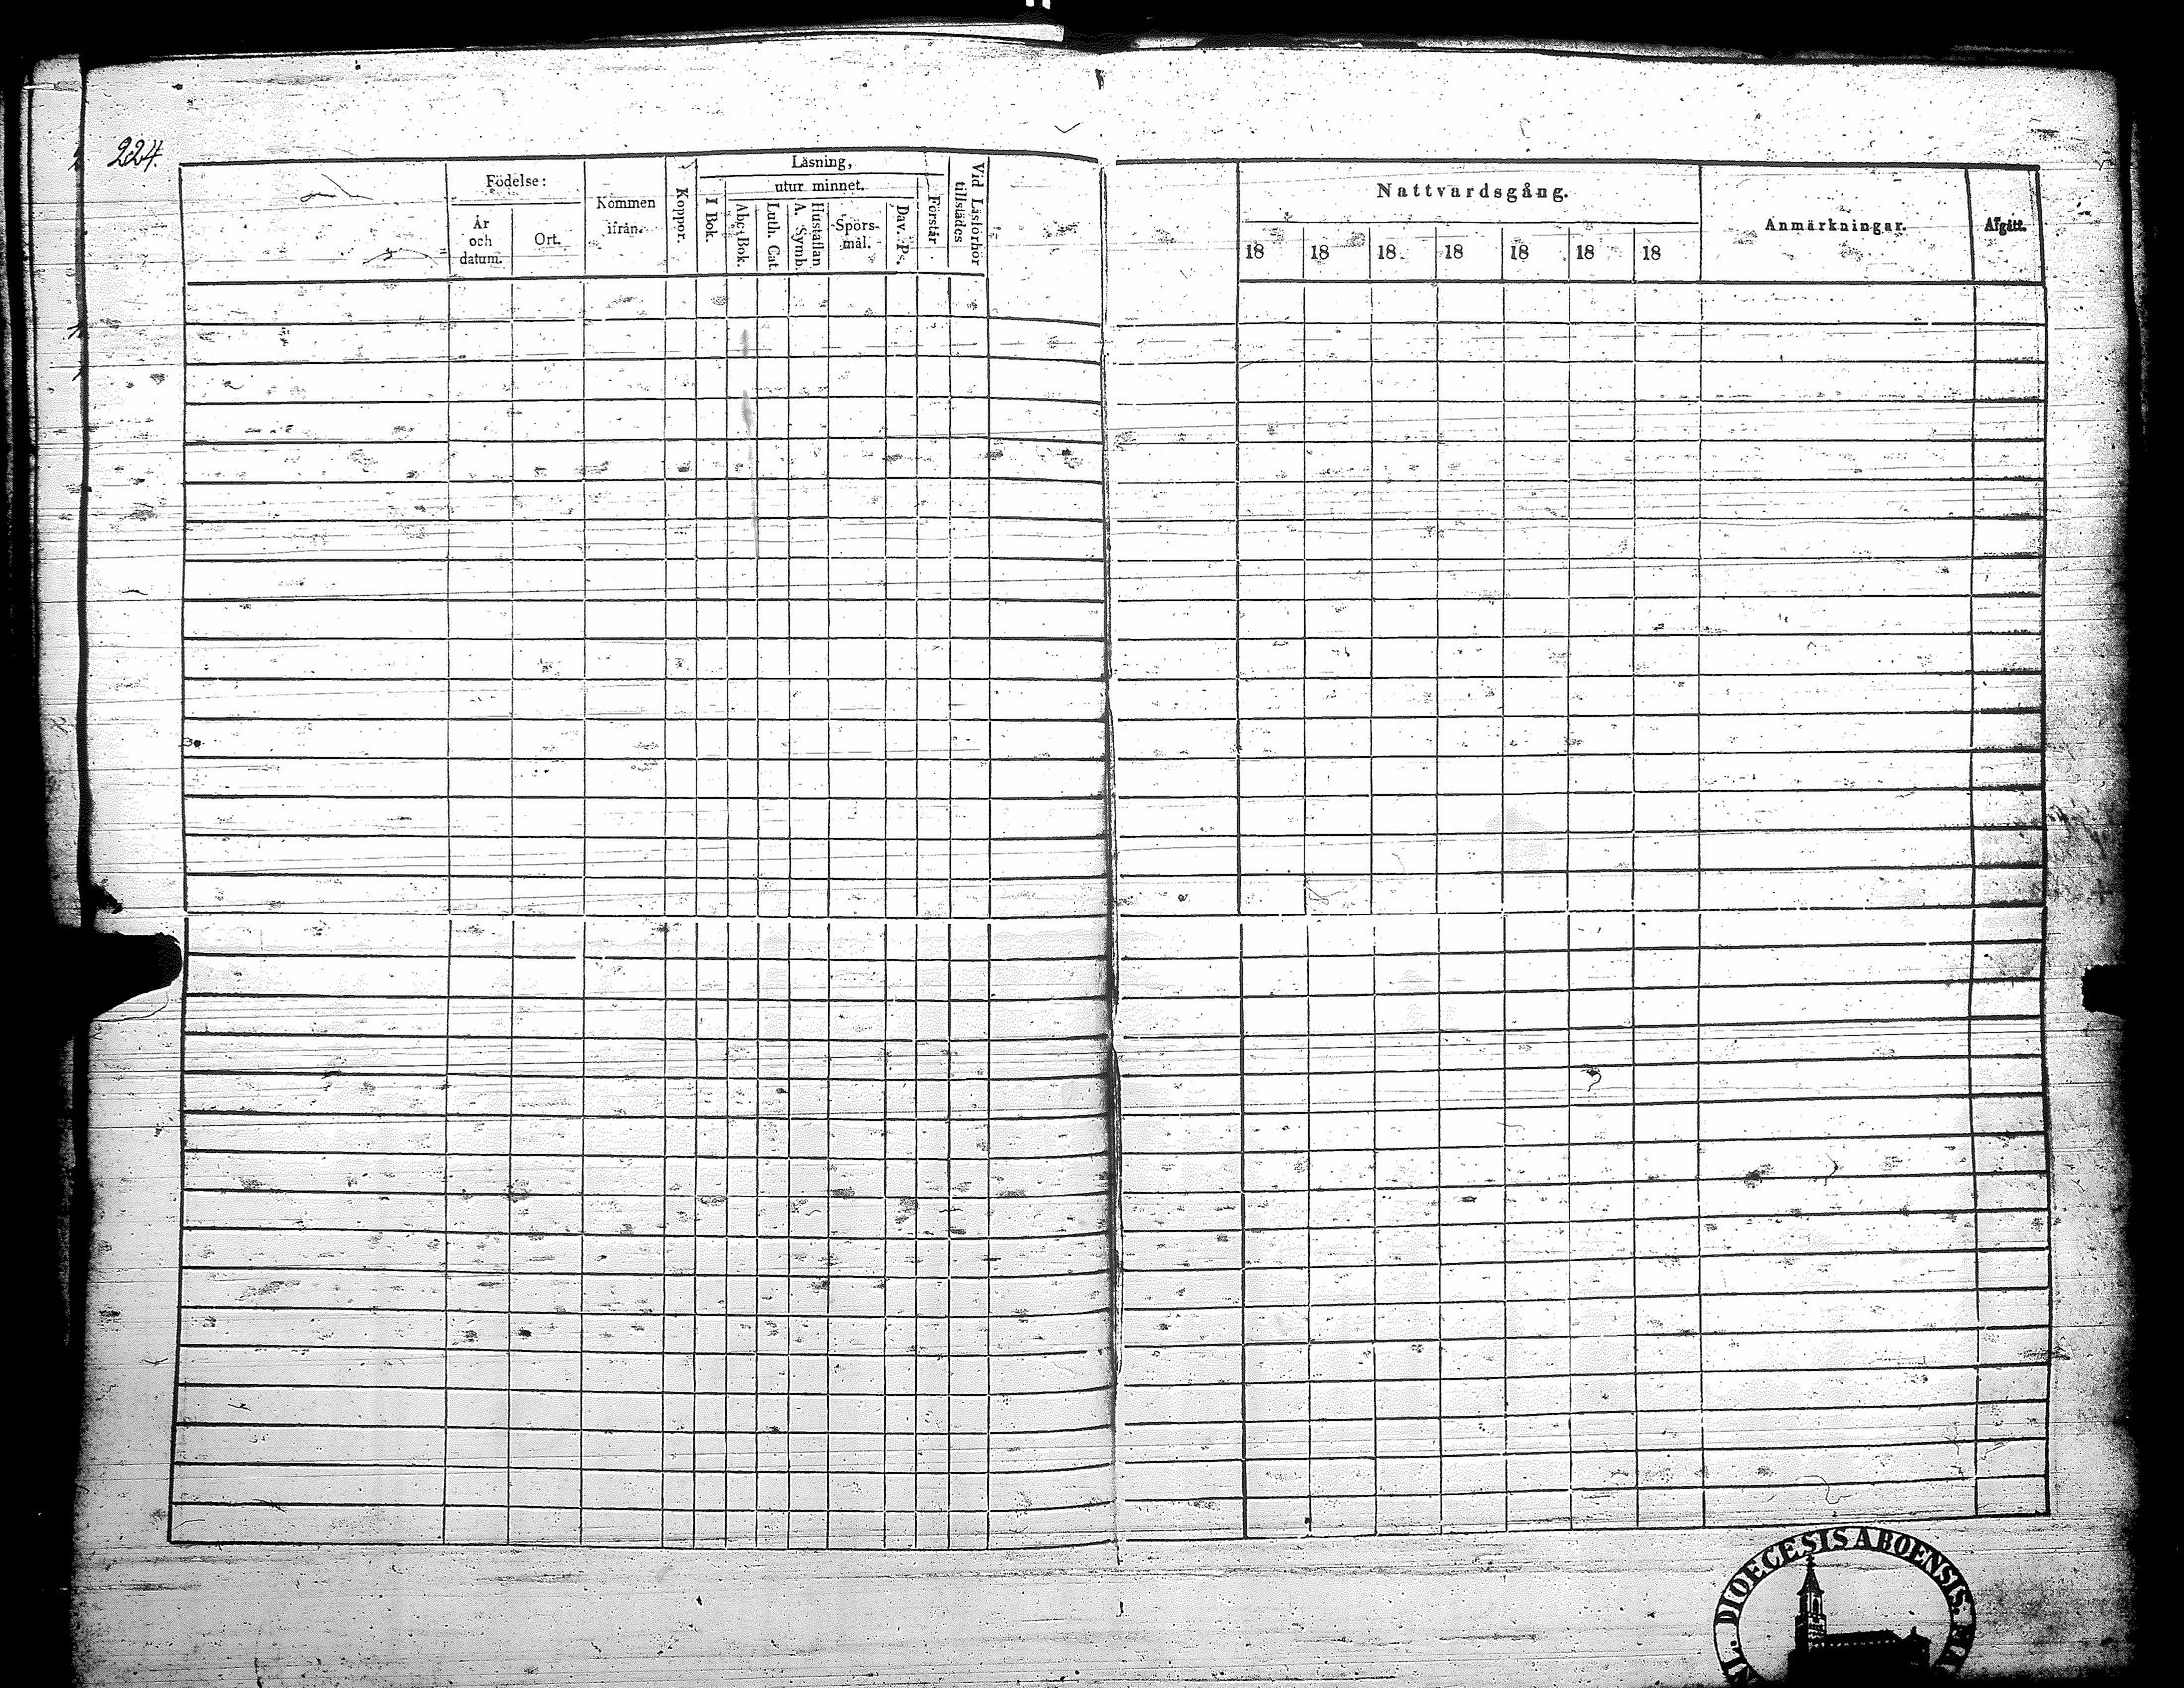 224.
Födelse:
År
och
datum.
Ort.
Kommen
ifrån.
Koppor.
Läsning,
utur minnet.
I Bok.
Abc-Bok.
Luth. Cat.
Hustaflan
A. Symb.
Spörs-
mål.
Dav. Ps.
Förstår
Vid Läsförhör
tillstädes
Nattvardsgång.
18 18 18 18 18 18 18
Anmärkningar.
Afgått.
DIOECESIS ABOENSIS